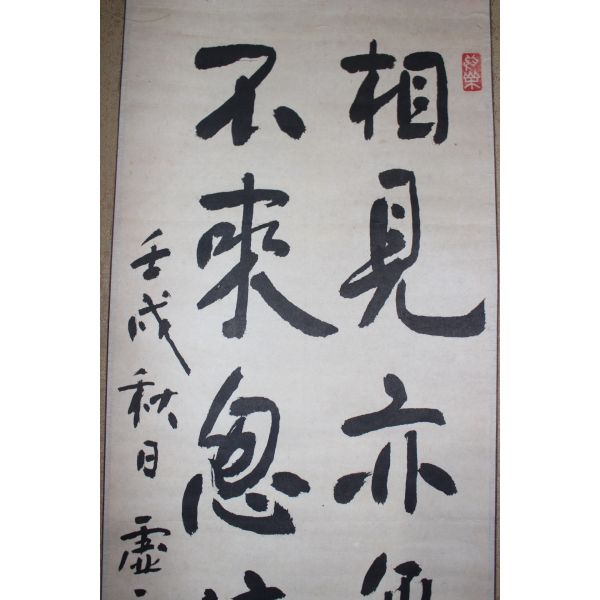 相見亦無
不來忽憶
壬戌秋日虛